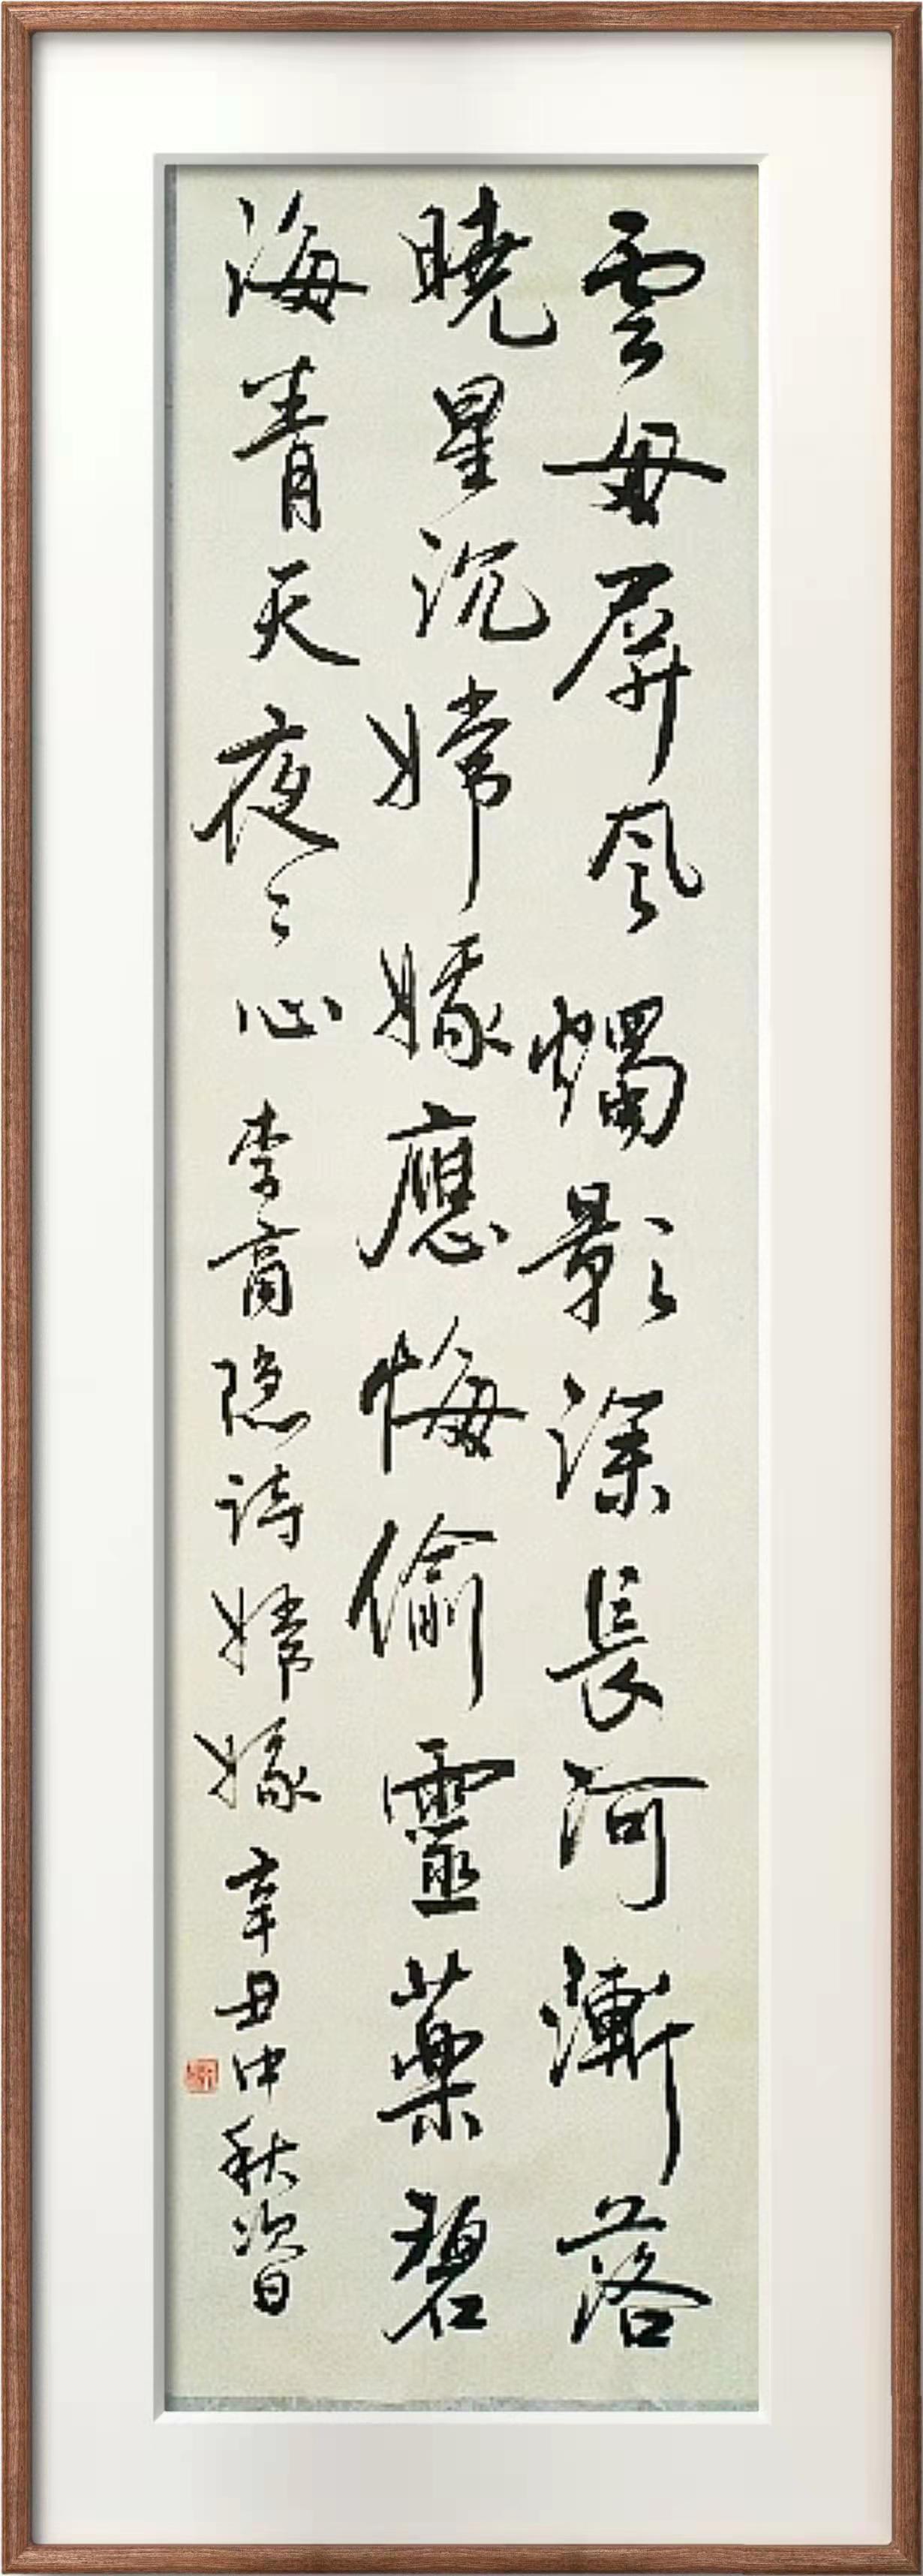 雲母屏風燭影深長河漸落
曉星沉嫦娥應悔偷靈藥碧
海青天夜々心 李商隐詩嫦娥 辛丑中秋次日